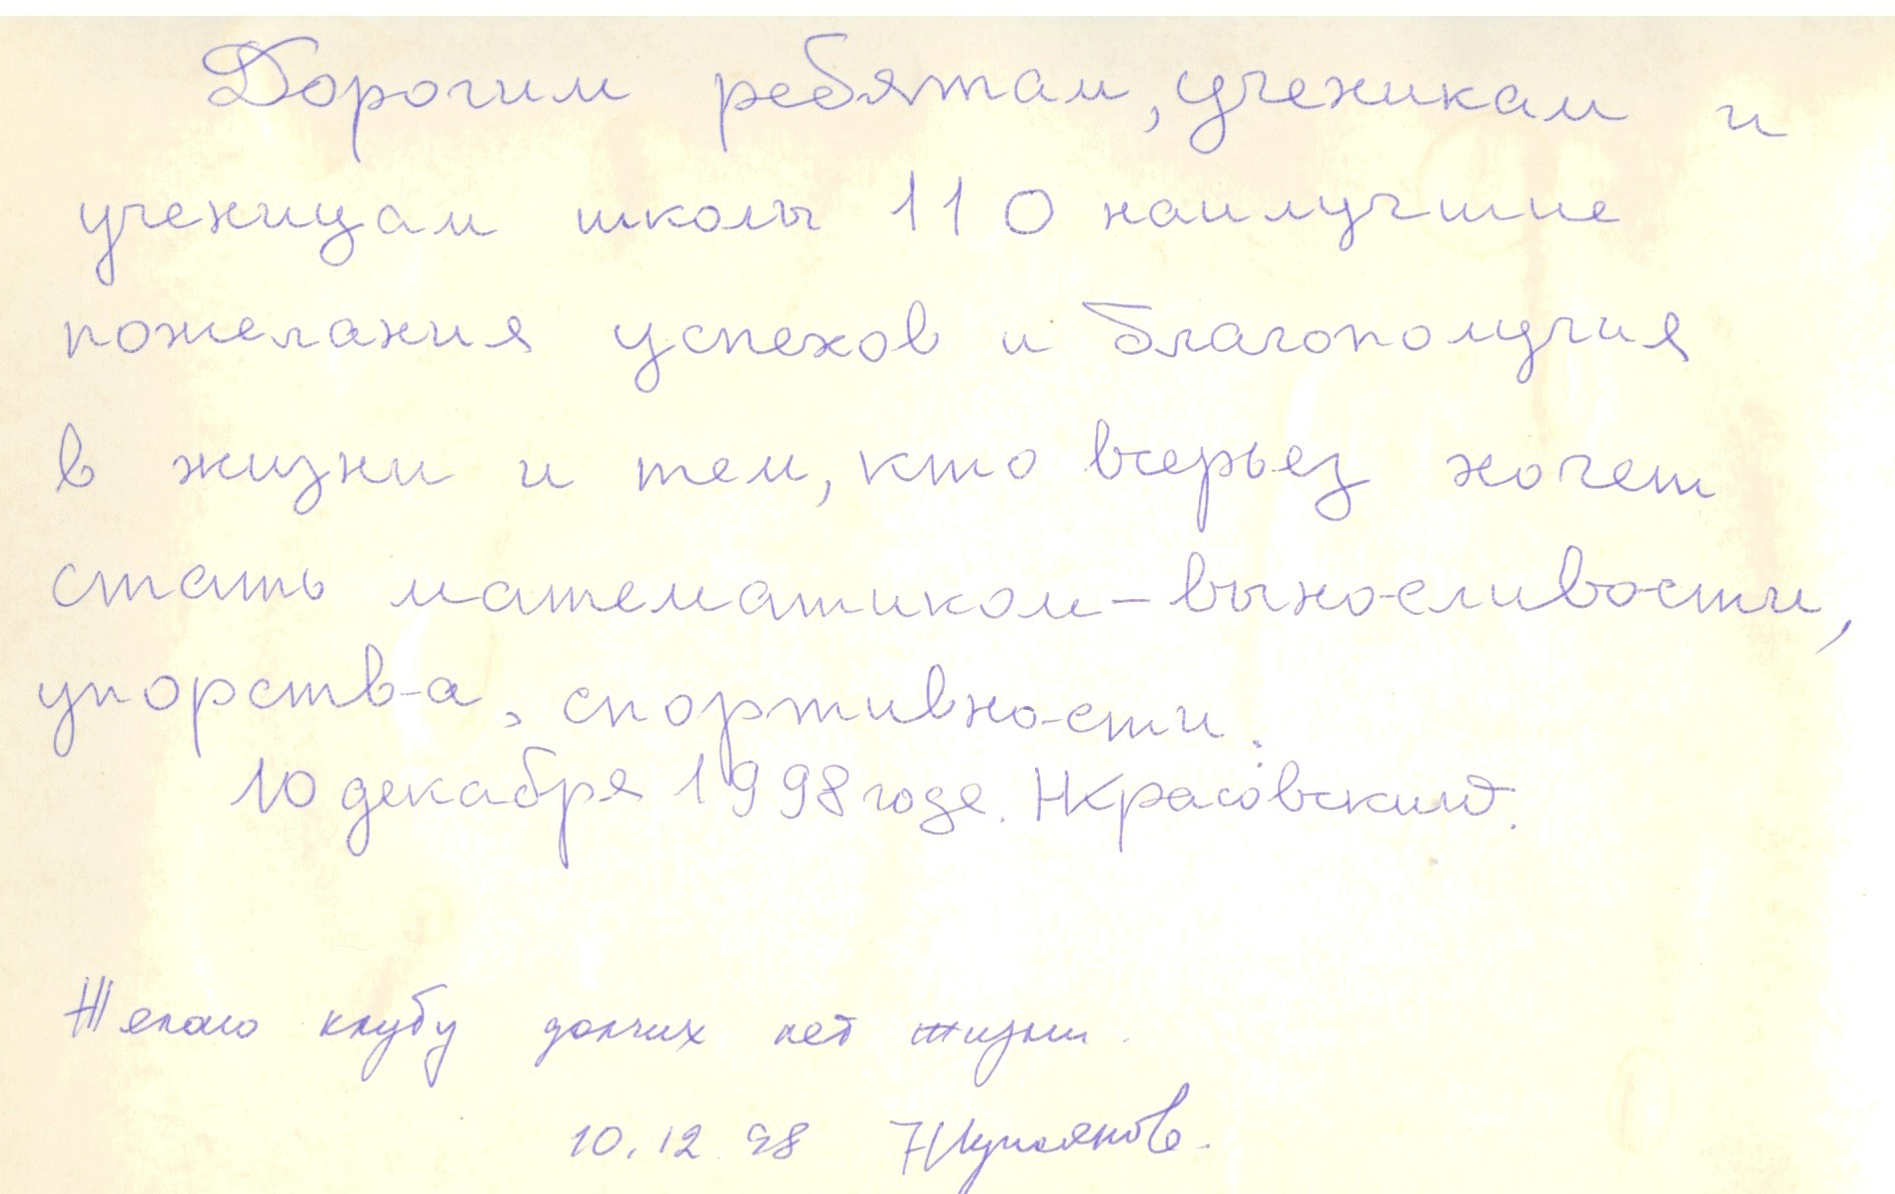 Дорогим ребятам, ученикам и
ученицам школы 110 наилучшие
пожелания успехов и благополучия
в жизни и тем, кто всерьез хочет
стать математиком – выносливости,
упорства, спортивности.
10 декабря 1998 года. НКрасовский.
Желаю клубу долгих лет жизни.
10.12.98